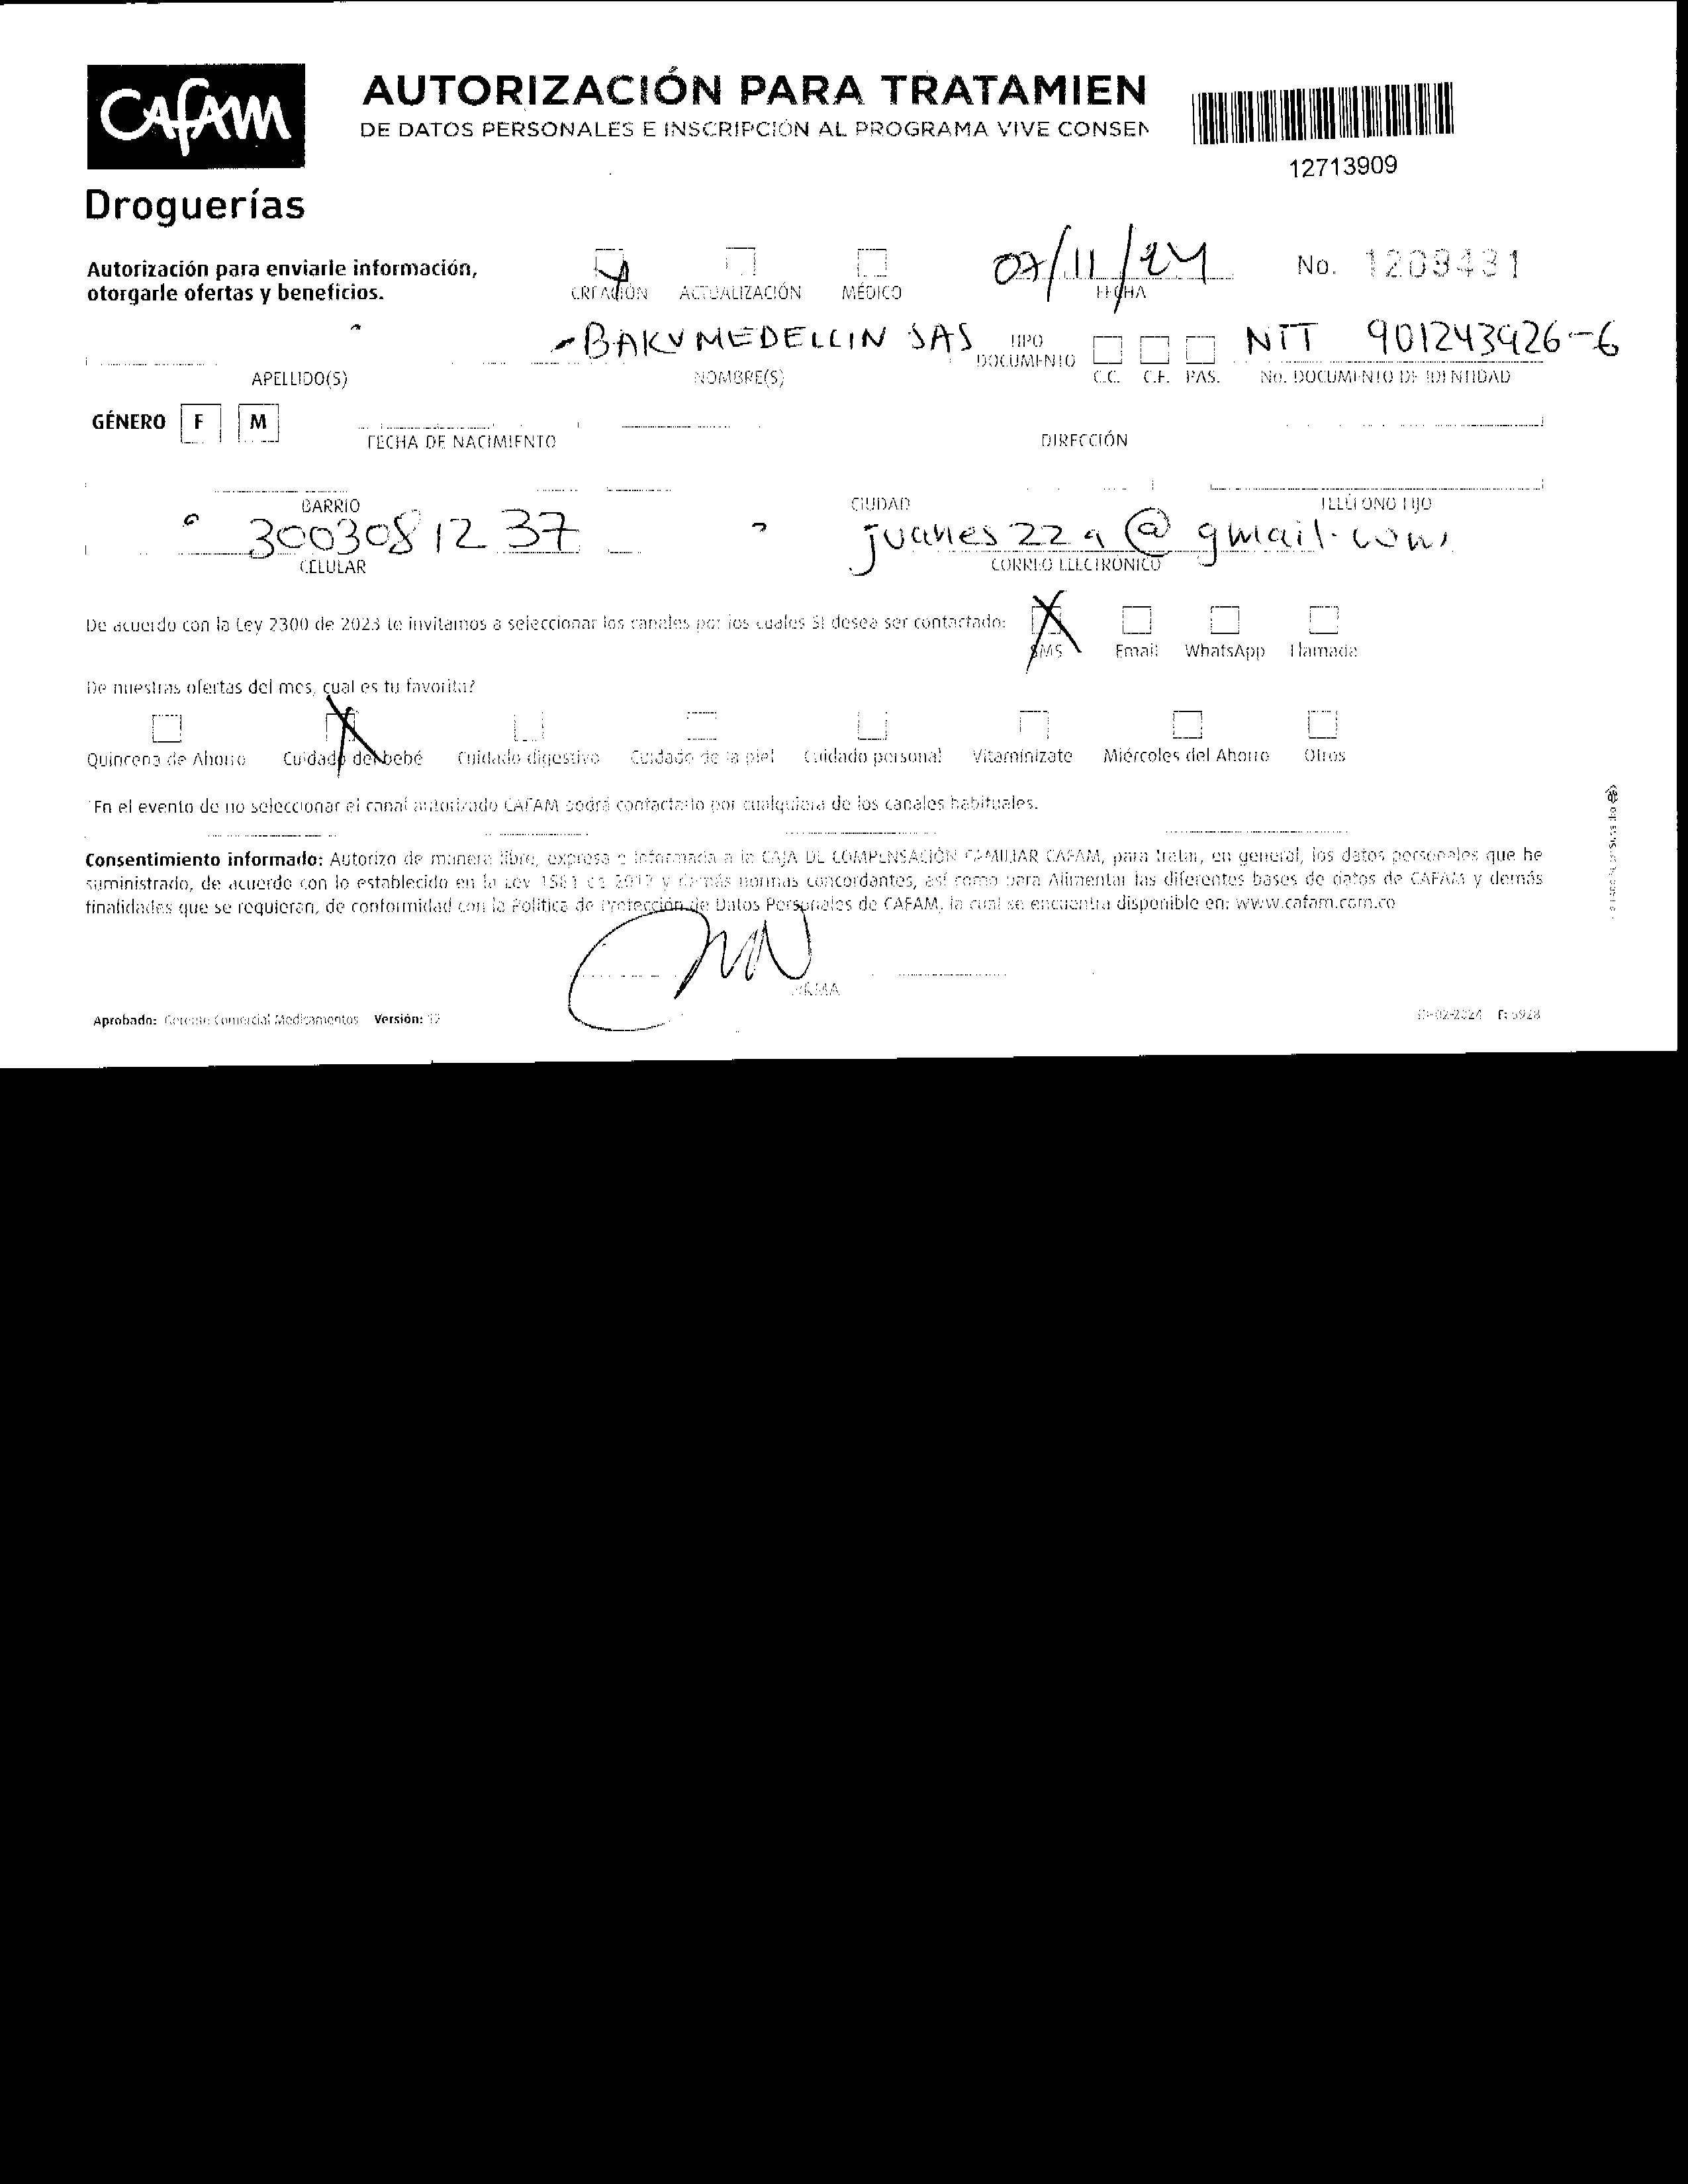 CAFAM
Droguerías
AUTORIZACIÓN PARA TRATAMIEN
DE DATOS PERSONALES E INSCRIPCIÓN AL PROGRAMA VIVE CONSEN
12713909
Autorización para enviarle información,
otorgarle ofertas y beneficios.
CREACIÓN ACTUALIZACIÓN MÉDICO
07/11/24
FECHA
No. 1209431
BAKU MEDELLIN SAS
TIPO
DOCUMENTO
NIT 901243926-6
APELLIDO(S) NOMBRE(S) C.C. C.E. PAS. No. DOCUMENTO DE IDENTIDAD
GÉNERO F M
FECHA DE NACIMIENTO DIRECCIÓN
BARRIO CIUDAD TELÉFONO FIJO
3003081237 juanes22a@gmail.com
CELULAR CORREO ELECTRÓNICO
De acuerdo con la Ley 2300 de 2023 te invitamos a seleccionar los canales por los cuales SI desea ser contactado:
SMS Email WhatsApp Llamada
De nuestras ofertas del mes, cual es tu favorita?
Quincena de Ahorro Cuidado del bebé Cuidado digestivo Cuidado de la piel Cuidado personal Vitaminízate Miércoles del Ahorro Otros
*En el evento de no seleccionar el canal autorizado CAFAM podrá contactarlo por cualquiera de los canales habituales.
Consentimiento informado: Autorizo de manera libre, expresa e informada a la CAJA DE COMPENSACIÓN FAMILIAR CAFAM, para tratar, en general, los datos personales que he
suministrado, de acuerdo con lo establecido en la Ley 1581 de 2012 y demás normas concordantes, así como para Alimentar las diferentes bases de datos de CAFAM y demás
finalidades que se requieran, de conformidad con la Política de Protección de Datos Personales de CAFAM, la cual se encuentra disponible en: www.cafam.com.co
FIRMA
Aprobado: Gerente Comercial Medicamentos Versión: 12
-02-2024 F: 5928